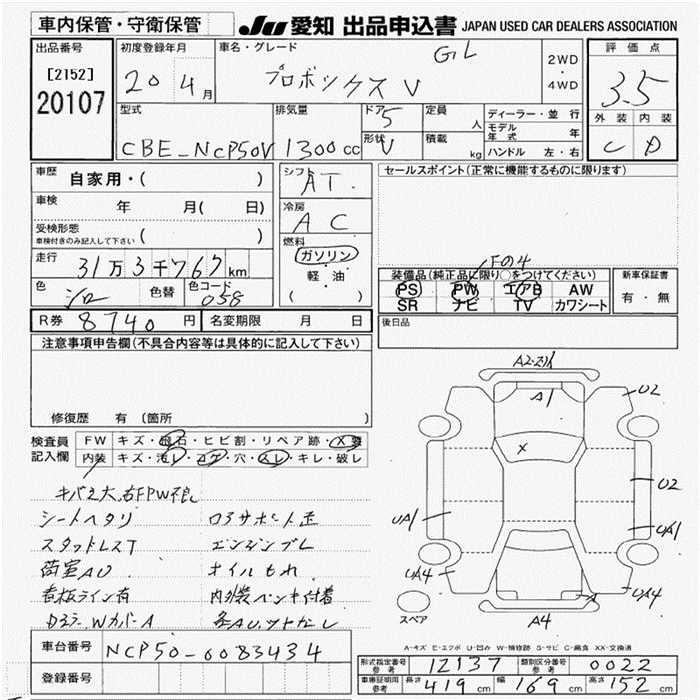 車内保管・守衛保管 JU 愛知 出品申込書 JAPAN USED CAR DEALERS ASSOCIATION
出品番号 初度登録年月 車名・グレード GL 2WD・4WD 評価点
[2152] 20 4月 プロボックスV 3.5
20107
型式 排気量 ドア 5 定員 人 ディーラー・並行 外装 内装
CBE-NCP50V 1300cc 形状 V 積載 kg モデル年式 年 C D
ハンドル 左・右
車歴 自家用・( ) シフト AT. セールスポイント(正常に機能するものに限ります)
車検 年 月( 日) 冷房 AC
受検形態 車検付きのみ記入して下さい ( ) 燃料 ガソリン
走行 31万3千767km 軽・油
色 シロ 色替 色コード 058 ( )
装備品(純正品に限り○をつけてください) 新車保証書
PS PW エアB AW 有・無
SR ナビ TV カワシート
R券 8740円 名変期限 月 日 後日品
注意事項申告欄(不具合内容等は具体的に記入して下さい)
修復歴 有 (箇所 )
検査員記入欄 FW キズ・飛石・ヒビ割・リペア跡・X要
内装 キズ・汚レ・コゲ・穴・スレ・キレ・破レ
シートヘタリ
スタッドレスT エンジンブレ
荷室AU オイルもれ
内外装ペンキ付着
A1 U2
X U2
UA1 UA1
UA4 A UA4
スペア A4
A-キズ E-エクボ U-凹み W-補修跡 S-サビ C-腐食 XX-交換済
車台番号 NCP50-0083434
登録番号
形式指定番号 参考 12137 類別区分番号 参考 0022
車庫証明用 参考 長さ 419cm 幅 169cm 高さ 152cm